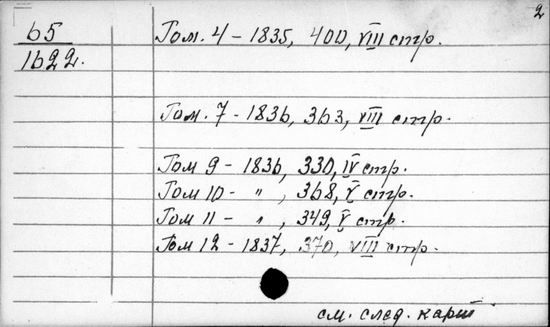 2
65
1622.
Том. 4 - 1835, 400, VIII стр.
Том. 7 - 1836, 363, VIII стр.
Том 9 - 1836, 330, IV стр.
Том 10 - " , 368, V стр.
Том 11 - " , 349, V стр.
Том 12 - 1837, 370, VIII стр.
см. след. карт